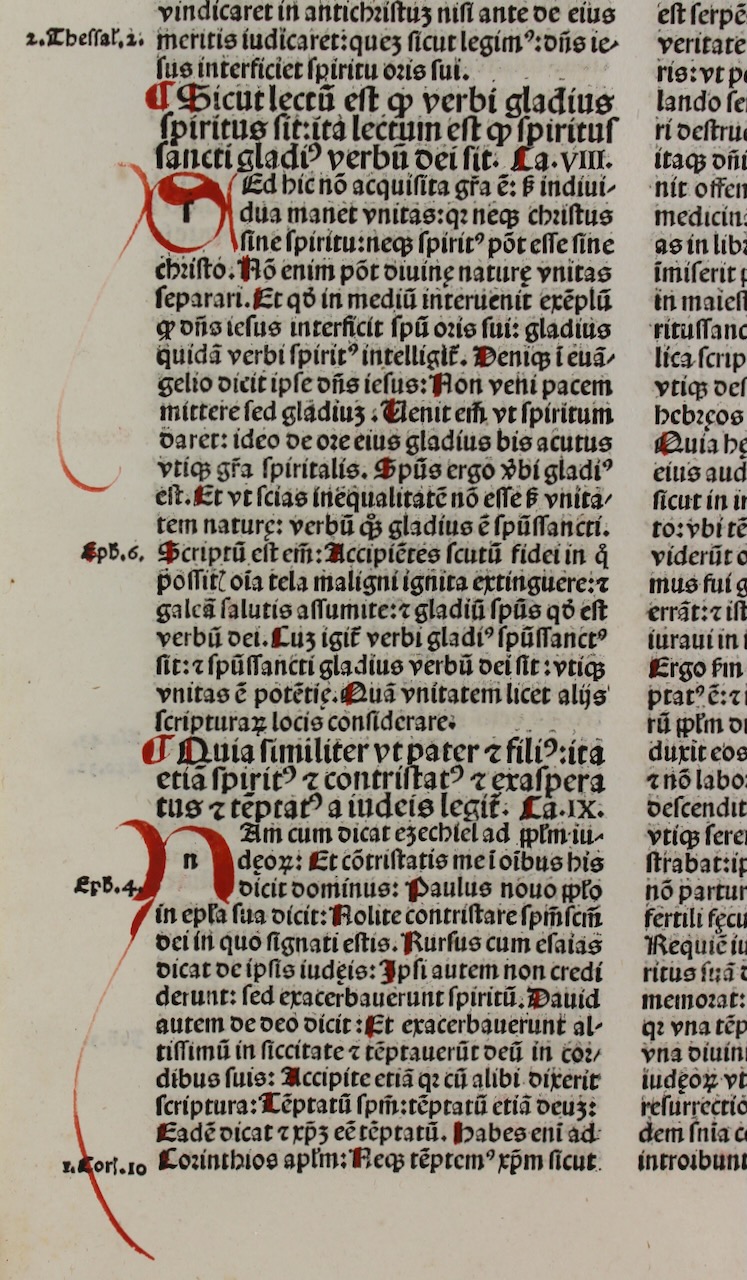 vindicaret in antichristuꝫ nisi ante de eius
2.Thessal.2. meritis iudicaret:queꝫ sicut legimꝰ:dñs ie⸗
sus interficiet spiritu oris sui.
¶ Sicut lectū est ꝙ verbi gladius
spiritus sit:ita lectum est ꝙ spiritus
sancti gladiꝰ verbū dei sit. Ca.VIII.
s Ed hic nō acquisita gr̄a ē: sꝫ indiui⸗
dua manet vnitas:qꝛ neqꝫ christus
sine spiritu:neqꝫ spiritꝰ pōt esse sine
christo. Nō enim pōt diuinę naturę vnitas
separari. Et qđ in mediū interuenit exēplū
ꝙ dñs iesus interficit spū oris sui: gladius
quidā verbi spiritꝰ intelligit᷑. Deniqꝫ ī euā⸗
gelio dicit ipse dñs iesus: Non veni pacem
mittere sed gladiuꝫ. Uenit em̄ vt spiritum
daret: ideo de ore eius gladius bis acutus
vtiqꝫ gr̄a spiritalis. Spūs ergo v̓bi gladiꝰ
est. Et vt scias inęqualitatē nō esse sꝫ vnita⸗
tem naturę: verbū qͦꝫ gladius ē spūssancti.
Eph.6. Scriptū est em̄: Accipiētes scutū fidei in q̊
possitꝭ oīa tela maligni ignita extinguere:⁊
galeā salutis assumite:⁊ gladiū spūs qđ est
verbū dei. Cuꝫ igit᷑ verbi gladiꝰ spūssanctꝰ
sit:⁊ spūssancti gladius verbū dei sit:vtiqꝫ
vnitas ē potētię. Quā vnitatem licet alijs
scripturaꝝ locis considerare.
¶ Quia similiter vt pater ⁊ filiꝰ:ita
etiā spiritꝰ ⁊ contristatꝰ ⁊ exaspera
tus ⁊ tēptatꝰ a iudeis legit᷑. Ca.IX.
n Am cum dicat ezechiel ad ꝓplm̄ iu⸗
dęoꝝ: Et cōtristatis me ī oībus his
Eph.4. dicit dominus: Paulus nouo ꝓplo
in epl̄a sua dicit: Nolite contristare spm̄scm̄
dei in quo signati estis. Rursus cum esaias
dicat de ipsis iudęis: Ipsi autem non credi
derunt: sed exacerbauerunt spiritū. Dauid
autem de deo dicit: Et exacerbauerunt al⸗
tissimū in siccitate ⁊ tēptauerūt deū in cor⸗
dibus suis: Accipite etiā qꝛ cū alibi dixerit
scriptura: Tēptatū spm̄:tēptatū etiā deuꝫ:
Eadē dicat ⁊ xp̄ꝫ eē tēptatū. Habes eni ad
1.Cor.10 Corinthios apl̄m: Neqꝫ tēptemꝰ xp̄m sicut
est serpē
veritate
ris:vt p
lando se
ri destru
itaqꝫ dñi
nit offen
medicin
as in lib
īmiserit p
in maiest
ritussanc
lica scrip
vtiqꝫ des
hebręos
Quia hę
eius aud
sicut in i
to:vbi tē
viderūt o
mus fui g
errāt:⁊ ist
iuraui in
Ergo
ptatꝰ ē:⁊ i
rū ꝓplm̄ d
duxit eos
⁊ nō labo
descendit
vtiqꝫ sere
strabat:ip
nō partur
fertili fęcu
Requiē iu
ritus suā
memorat:
qꝛ vna tēp
vna diuin
iudęoꝝ vt
resurrectio
dem snīa c
introibunt